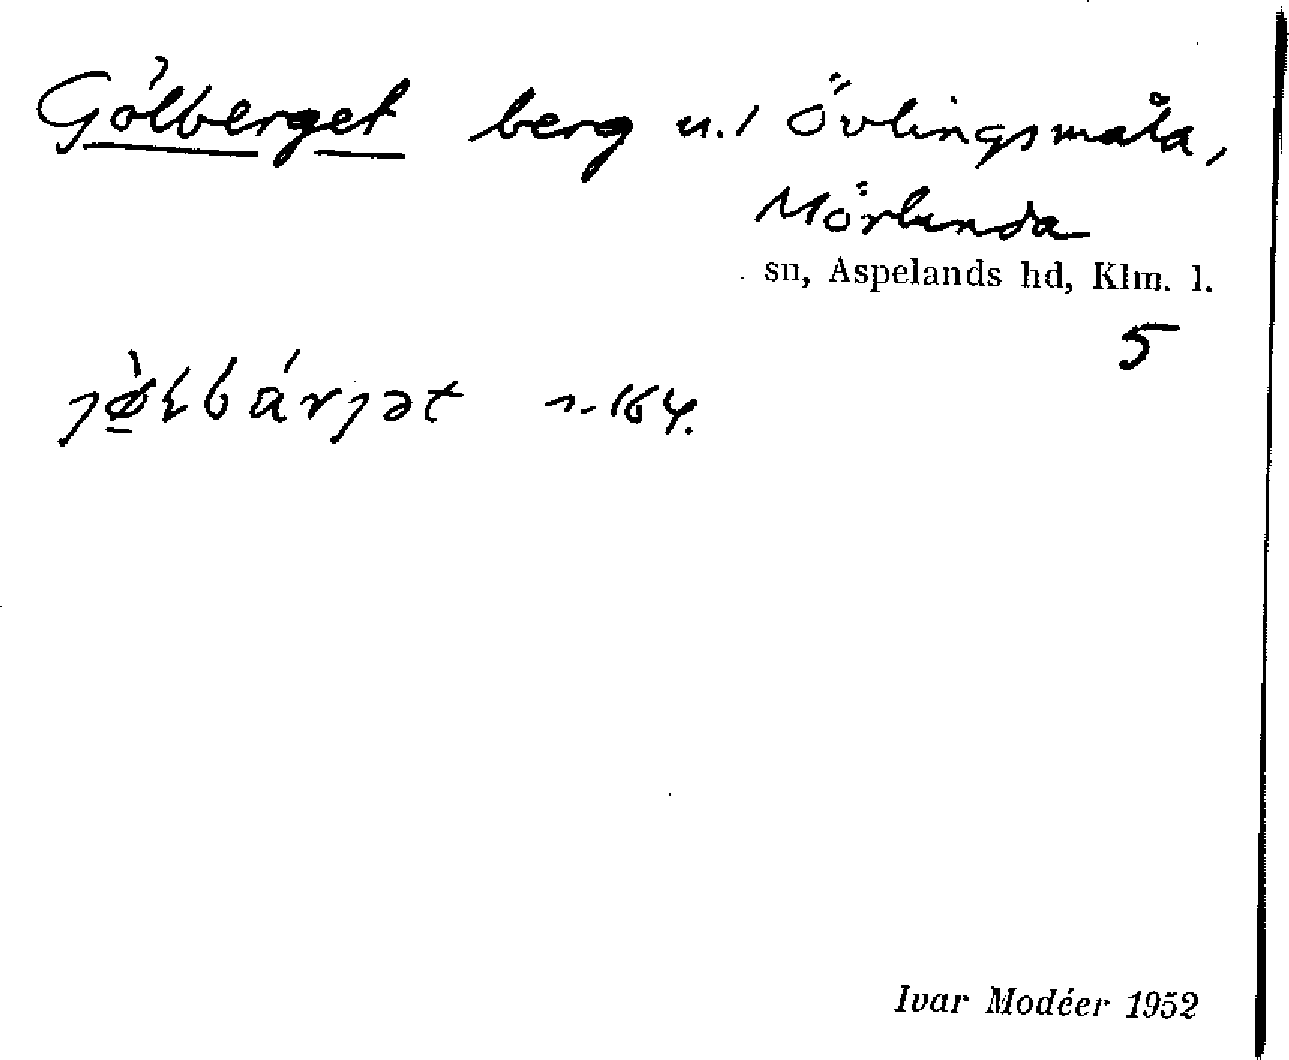 Gölberget berg u./ Övlingsmåla,
Mörlunda
sn, Aspelands hd, Klm. l.
5
n. 164.
Ivar Modéer 1952